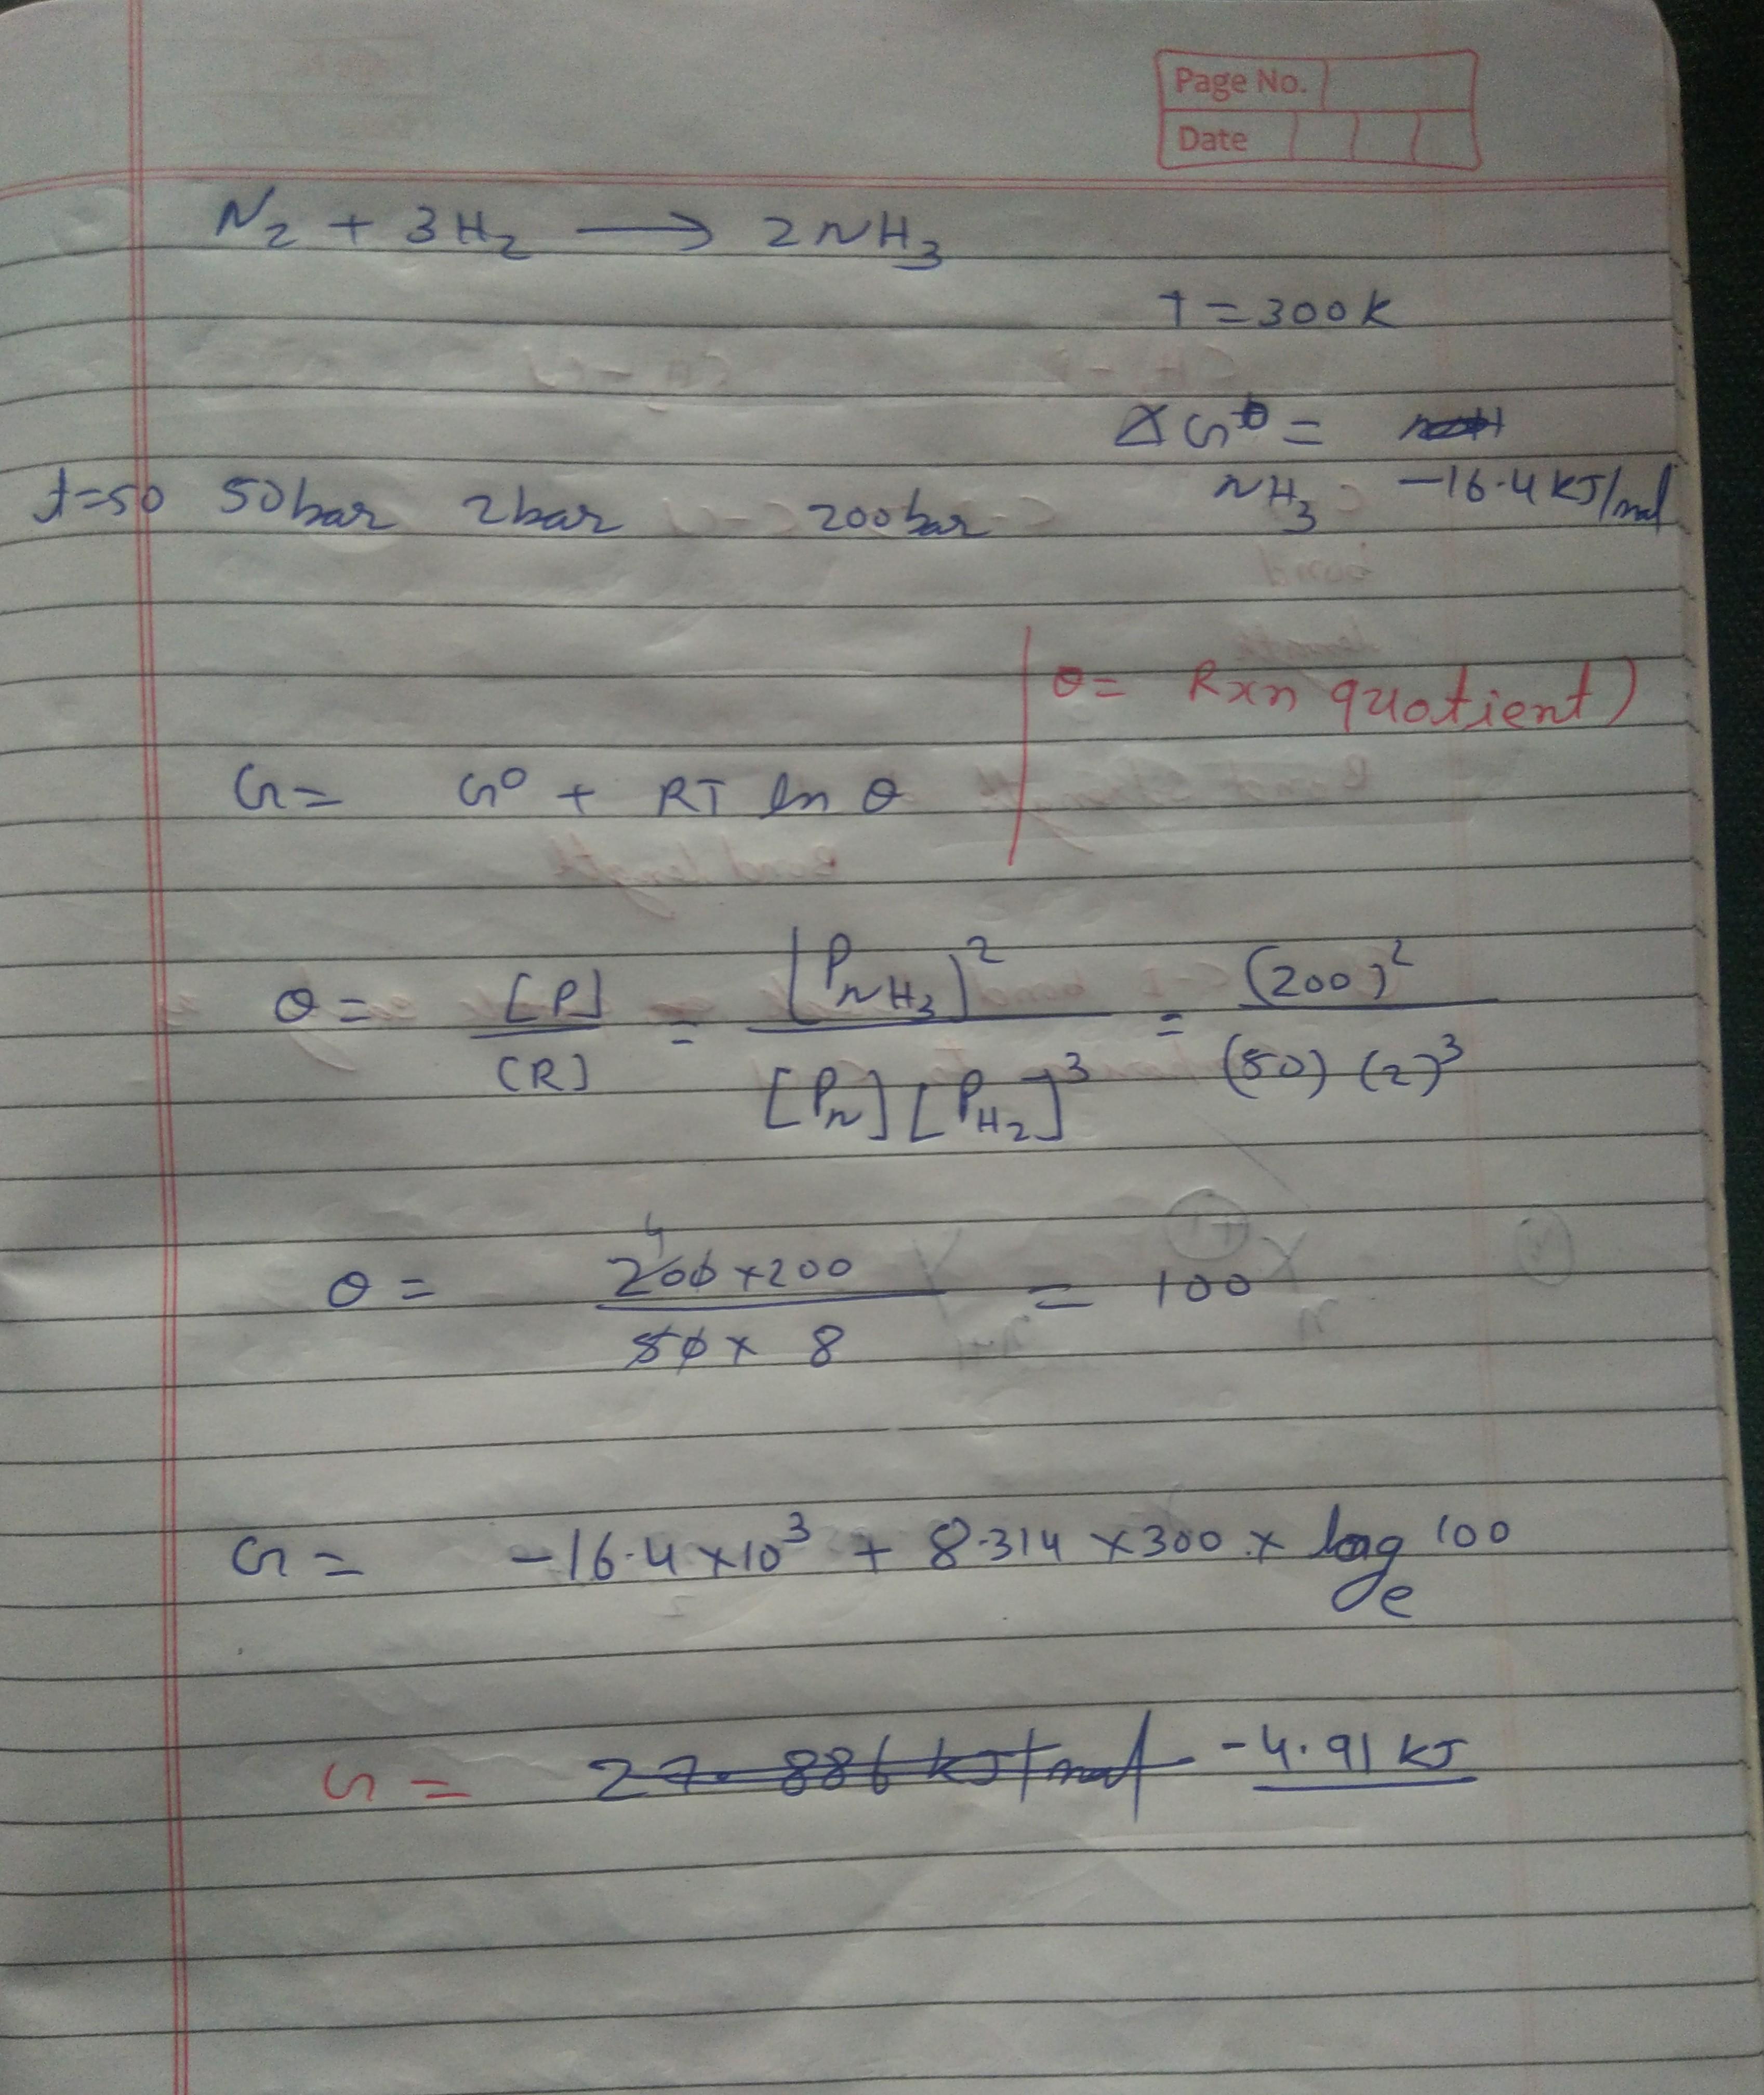 Page No.
Date
N₂ + 3H₂ ⟶ 2NH₃
T = 300K
ΔG° =
NH₃ = -16.4 KJ/mol
t=50 50bar 2bar 200bar
θ = Rxn quotient)
G = G° + RT ln θ
θ = [P]/[R] = [P_NH₃]²/[P_N][P_H₂]³ = (200)²/(50) (2)³
4
θ = 200×200/50× 8 = 100
G = -16.4×10³ + 8.314 ×300 × log_e 100
G = 27.886 KJ/mol -4.91 KJ